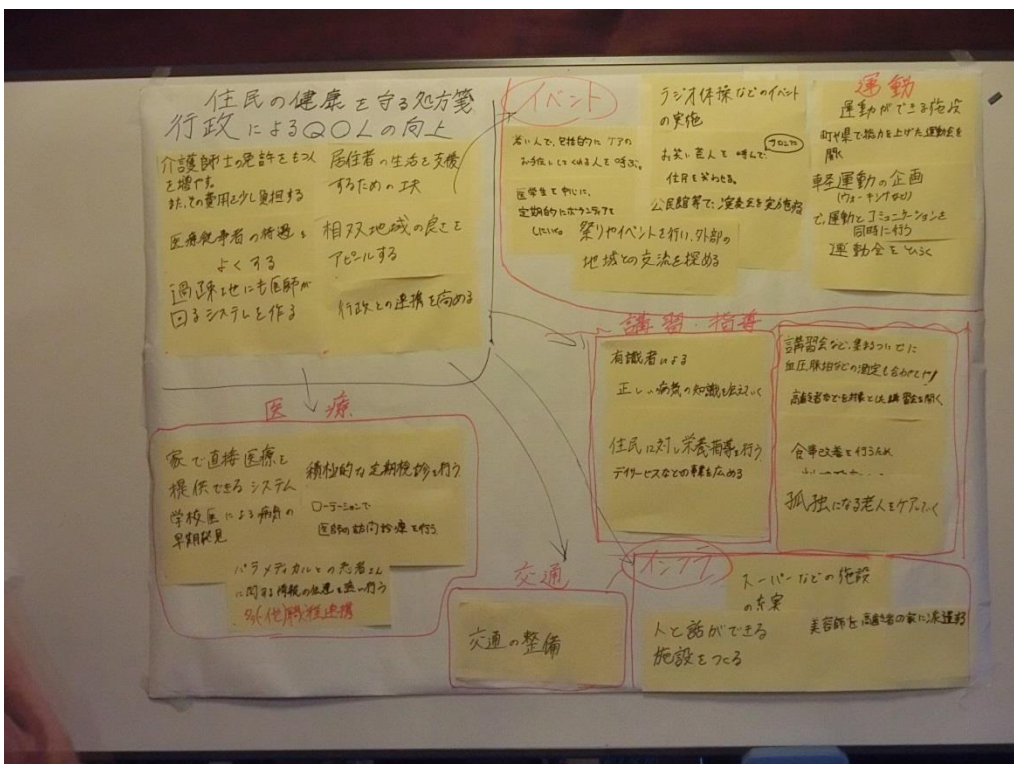 住民の健康を守る処方箋
行政によるQOLの向上
介護師士の免許をもつ人
を増やす。
また、その費用を少し負担する
居住者の生活を支援
するための工夫
医療従事者の待遇を
よくする
相双地域の良さを
アピールする
過疎地にも医師が
回るシステムを作る
行政との連携を高める
イベント
若い人で、定期的にケアの
お手伝いしてくれる人を呼ぶ。
医学生を中心に、
定期的にボランティアを
したい。
ラジオ体操などのイベント
の実施
お笑い芸人を呼んで、
住民を笑わせる。
公民館等で、演奏会を実施する
祭りやイベントを行い、外部の
地域との交流を深める
運動
運動ができる施設
町や県で協力を上げた運動会を
開く
軽運動の企画
(ウォーキングなど)
で、運動とコミュニケーションを
同時に行う
運動会をひらく
講習・指導
有識者による
正しい病気の知識を伝えていく
住民に対し栄養指導を行う
デイサービスなどの事業を広める
講習会など、集まるついでに
血圧、脈拍などの測定も合わせて行う
高齢者などを対象とした講習会を開く
食事改善を行うため
孤独になる老人をケアしていく
医療
家で直接医療を
提供できるシステム
学校医による病気の
早期発見
積極的な定期検診を行う
ローテーションで
医師の訪問診療を行う
パラメディカルとの患者さん
に関する情報の伝達を密に行う
多(他)職種連携
交通
交通の整備
インフラ
スーパーなどの施設
の充実
人と話ができる
施設をつくる
美容師を高齢者の家に派遣する